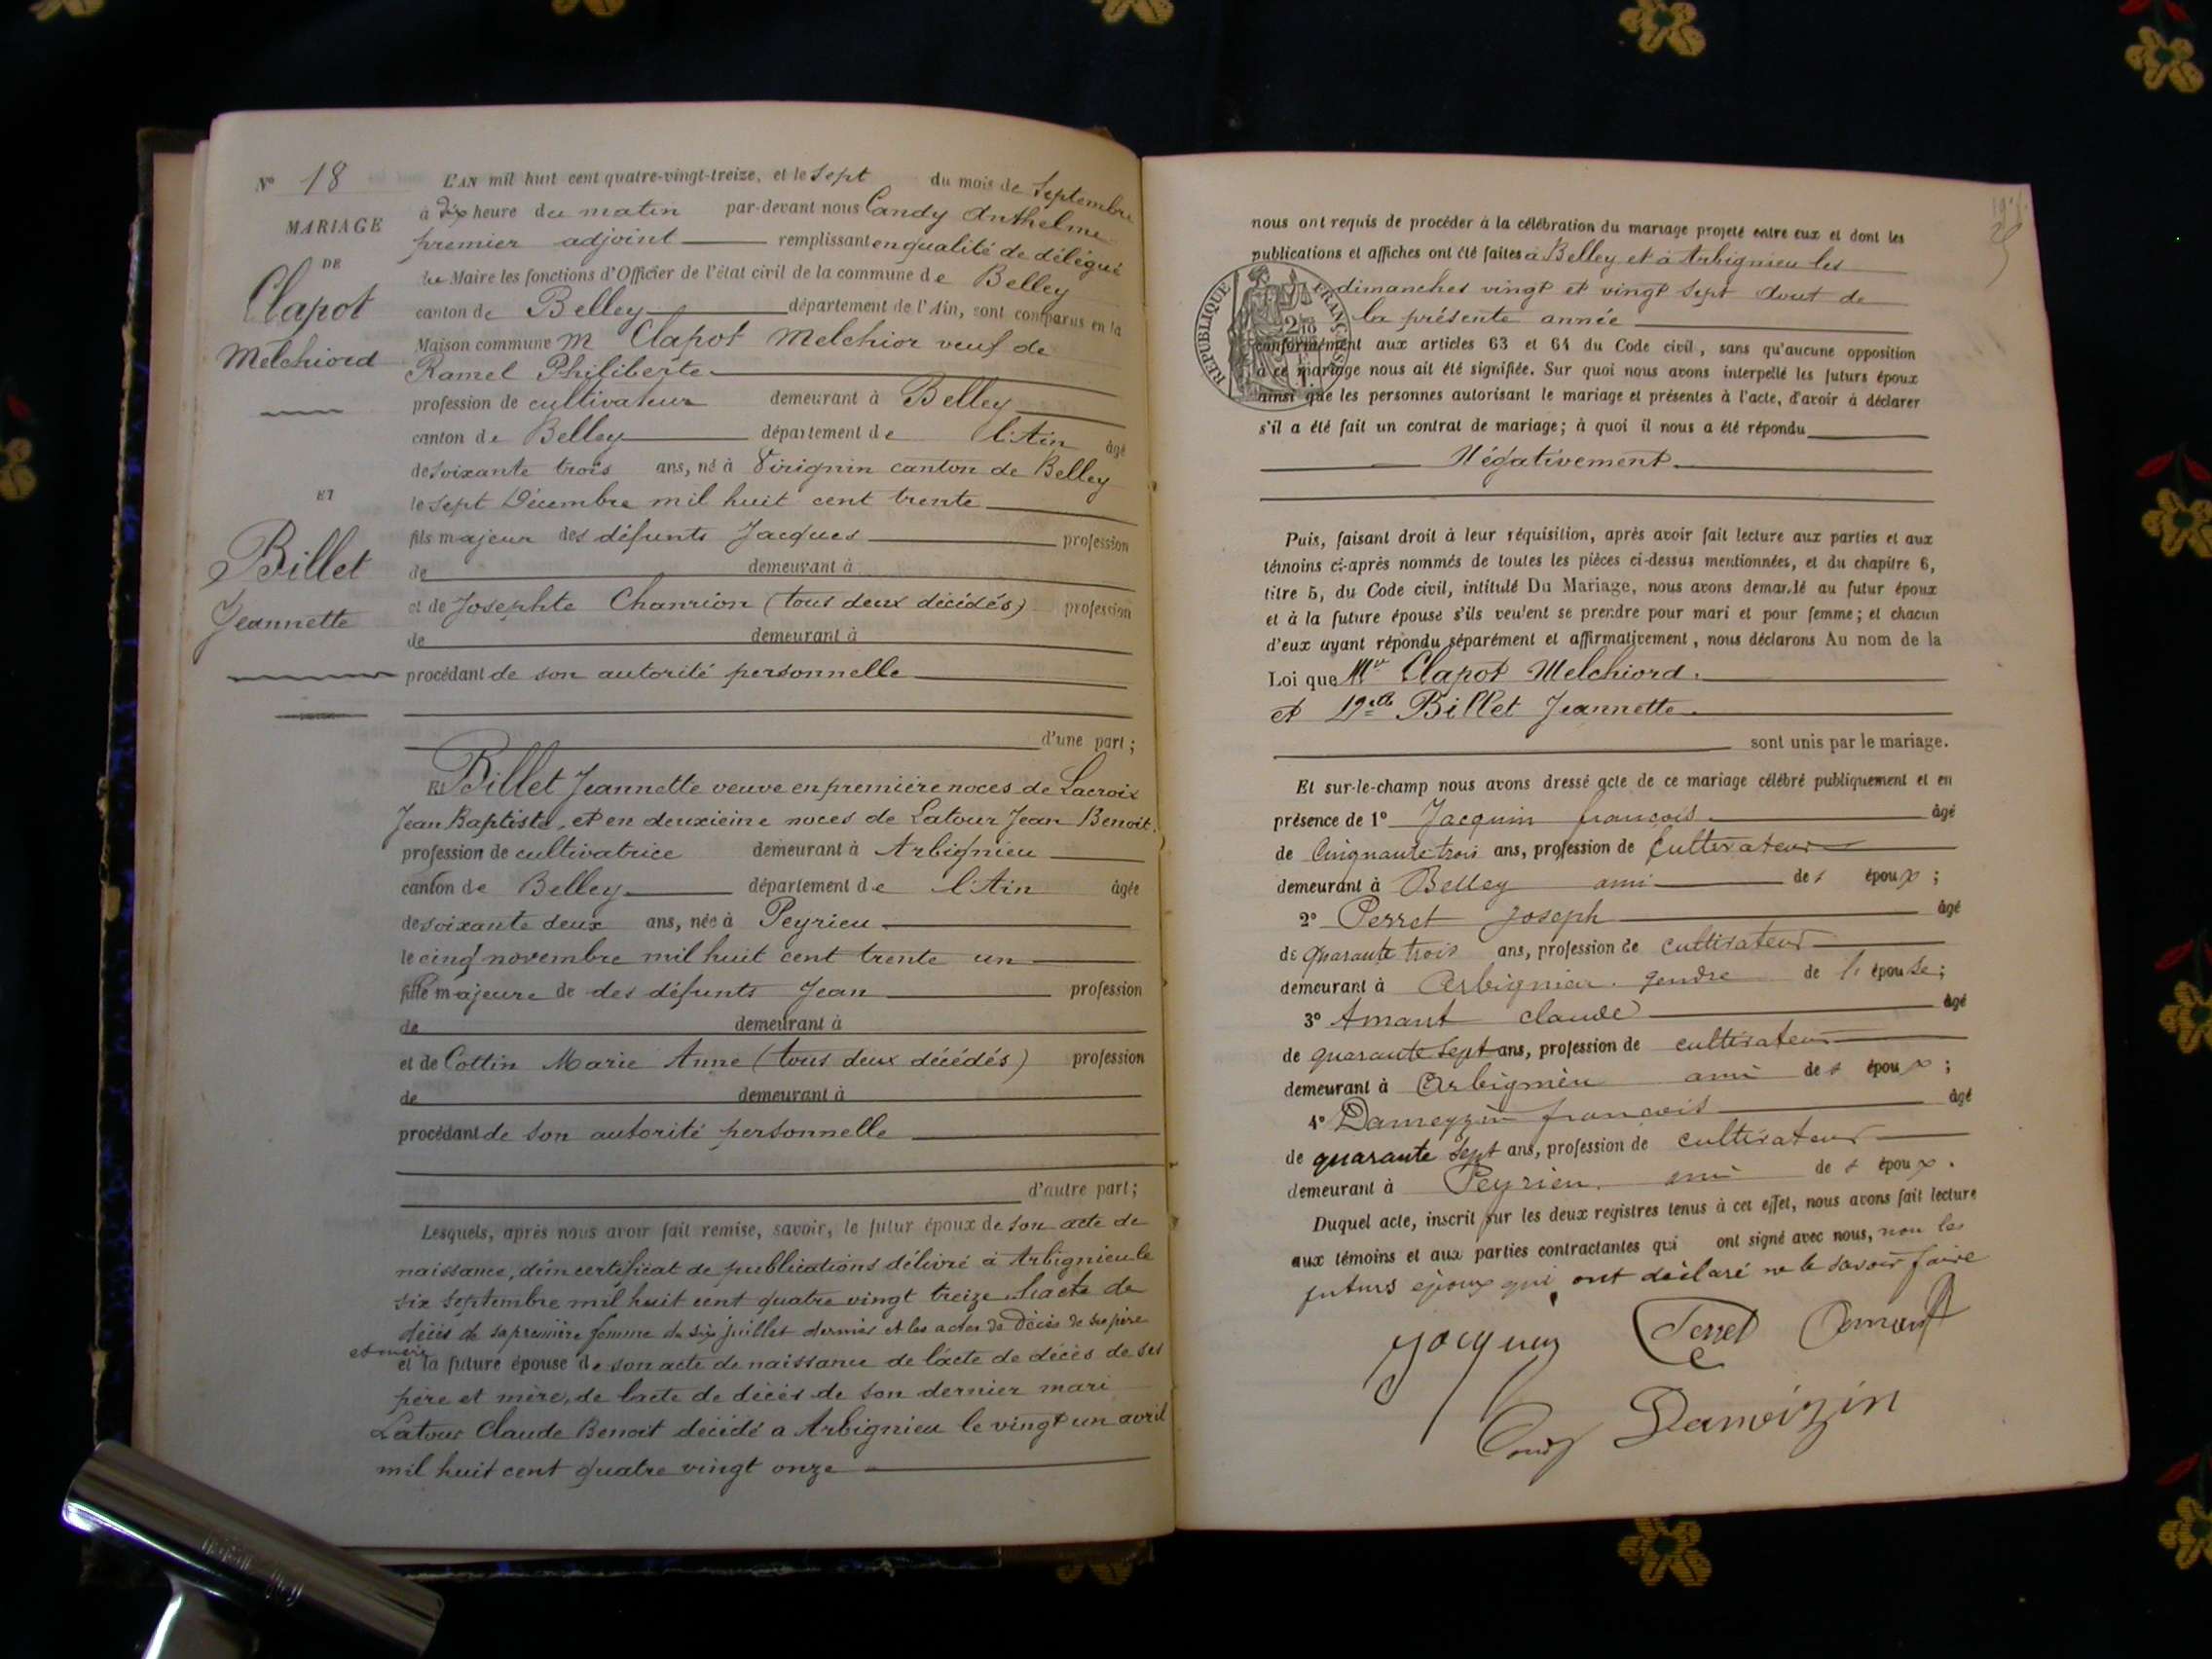 N° 18
MARIAGE
DE
Clapot
Melchiord
ET
Billet
Jeannette
L'AN mil huit cent quatre-vingt-treize, et le sept du mois de Septembre
à dix heure du matin par-devant nous Candy Anthelme
premier adjoint remplissant en qualité de délégué
du Maire les fonctions d'Officier de l'état civil de la commune de Belley
canton de Belley département de l'Ain, sont comparus en la
Maison commune M Clapot Melchior veuf de
Ramel Philiberte
profession de cultivateur demeurant à Belley
canton de Belley département de l'Ain âgé
de soixante trois ans, né à Virignin canton de Belley
le sept Décembre mil huit cent trente
fils majeur des défunts Jacques profession
de demeurant à
et de Josephte Chanrion (tous deux décédés) profession
de demeurant à
procédant de son autorité personnelle
d'une part;
Et Billet Jeannette veuve en première noces de Lacroix
Jean Baptiste, et en deuxième noces de Latour Jean Benoit.
profession de cultivatrice demeurant à Arbignieu
canton de Belley département de l'Ain âgée
de soixante deux ans, née à Peyrieu
le cinq novembre mil huit cent trente un
fille majeure de des défunts Jean profession
de demeurant à
et de Cottin Marie Anne (tous deux décédés) profession
de demeurant à
procédant de son autorité personnelle
d'autre part;
Lesquels, après nous avoir fait remise, savoir, le futur époux de son acte de
naissance, d'un certificat de publications délivré à Arbignieu le
six septembre mil huit cent quatre vingt treize, l'acte de
décès de sa première femme du six juillet dernier et les actes de décès de ses père
et mère
et la future épouse de son acte de naissance de l'acte de décès de ses
père et mère, de l'acte de décès de son dernier mari
Latour Claude Benoit décédé a Arbignieu le vingt un avril
mil huit cent quatre vingt onze
nous ont requis de procéder à la célébration du mariage projeté entre eux et dont les
publications et affiches ont été faites à Belley et à Arbignieu les
dimanches vingt et vingt sept Aout de
la présente année
REPUBLIQUE FRANÇAISE
conformément aux articles 63 et 64 du Code civil, sans qu'aucune opposition
à ce mariage nous ait été signifiée. Sur quoi nous avons interpellé les futurs époux
ainsi que les personnes autorisant le mariage et présentes à l'acte, d'avoir à déclarer
s'il a été fait un contrat de mariage; à quoi il nous a été répondu
Négativement
Puis, faisant droit à leur réquisition, après avoir fait lecture aux parties et aux
témoins ci-après nommés de toutes les pièces ci-dessus mentionnées, et du chapitre 6,
titre 5, du Code civil, intitulé Du Mariage, nous avons demandé au futur époux
et à la future épouse s'ils veulent se prendre pour mari et pour femme; et chacun
d'eux ayant répondu séparément et affirmativement, nous déclarons Au nom de la
Loi que Mr Clapot Melchiord.
et Billet Jeannette
sont unis par le mariage.
Et sur-le-champ nous avons dressé acte de ce mariage célébré publiquement et en
présence de 1° Jacquin françois âgé
de Cinquante trois ans, profession de Cultivateur
demeurant à Belley ami des époux;
2° Perret Joseph âgé
de quarante trois ans, profession de cultivateur
demeurant à Arbignieu. gendre de l'épouse;
3° Amant claude âgé
de quarante sept ans, profession de cultivateur
demeurant à Arbignieu ami des époux;
4° Dameyzin françois âgé
de quarante sept ans, profession de cultivateur
demeurant à Peyrieu. ami des époux.
Duquel acte, inscrit sur les deux registres tenus à cet effet, nous avons fait lecture
aux témoins et aux parties contractantes qui ont signé avec nous, non les
futurs époux qui ont déclaré ne le savoir faire
Jacquin Perret Amant
Candy Damoizin